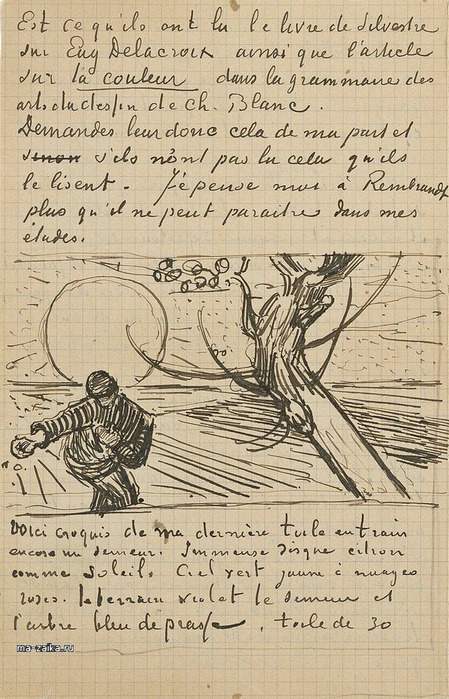 Est ce qu'ils ont lu le livre de Silvestre
sur Eug Delacroix ainsi que l'article
sur la couleur dans la grammaire des
arts du dessin de Ch. Blanc.
Demandes leur donc cela de ma part et
sinon s'ils n'ont pas lu cela qu'ils
le lisent. Je pense moi à Rembrandt
plus qu'il ne peut paraitre dans mes
études.
Voici croquis de ma dernière toile en train
encore un semeur. Immense disque citron
comme soleil. Ciel vert jaune à nuages
roses. le terrain violet le semeur et
l'arbre bleu de prusse. toile de 30
ma-zaika.ru